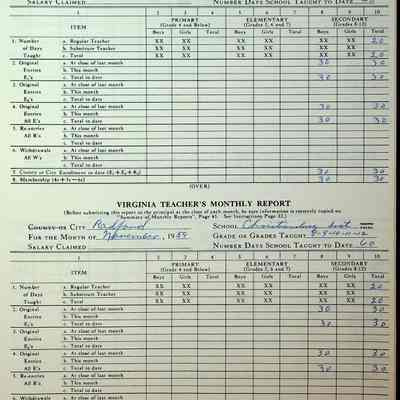 SALARY CLAIMED NUMBER DAYS SCHOOL TAUGHT TO DATE 40
1 2 3 4 5 6 7 8 9 10
ITEM PRIMARY (Grade 4 and Below) ELEMENTARY (Grades 5, 6 and 7) SECONDARY (Grades 8-12)
Boys Girls Total Boys Girls Total Boys Girls Total
1. Number a. Regular Teacher XX XX XX XX XX XX 20
of Days b. Substitute Teacher XX XX XX XX XX XX
Taught c. Total XX XX XX XX XX XX 20
2. Original a. At close of last month 30 30
Entries b. This month
E₁'s c. Total to date 30 30
3. Original a. At close of last month
Entries b. This month
E₂'s c. Total to date
4. Original a. At close of last month 30 30
Entries b. This month
All E's c. Total to date 30 30
5. Re-entries a. At close of last month
All R's b. This month
c. Total to date
6. Withdrawals a. At close of last month
All W's b. This month
c. Total to date
7. County or City Enrollment to date 30 30
8. Membership 30 30
(OVER)
VIRGINIA TEACHER'S MONTHLY REPORT
(Before submitting this report to the principal at the close of each month, be sure information is correctly copied on
"Summary of Monthly Reports", Page 41. See Instructions Page 32.)
COUNTY OR CITY Radford SCHOOL
FOR THE MONTH OF November, 19 GRADE OR GRADES TAUGHT 8-9-10-11-12
SALARY CLAIMED NUMBER DAYS SCHOOL TAUGHT TO DATE 60
1 2 3 4 5 6 7 8 9 10
ITEM PRIMARY (Grade 4 and Below) ELEMENTARY (Grades 5, 6 and 7) SECONDARY (Grades 8-12)
Boys Girls Total Boys Girls Total Boys Girls Total
1. Number a. Regular Teacher XX XX XX XX XX XX 20
of Days b. Substitute Teacher XX XX XX XX XX XX
Taught c. Total XX XX XX XX XX XX 20
2. Original a. At close of last month 30 30
Entries b. This month
E₁'s c. Total to date 30 30
3. Original a. At close of last month
Entries b. This month
E₂'s c. Total to date
4. Original a. At close of last month 30 30
Entries b. This month
All E's c. Total to date 30 30
5. Re-entries a. At close of last month
All R's b. This month
c. Total to date
6. Withdrawals a. At close of last month